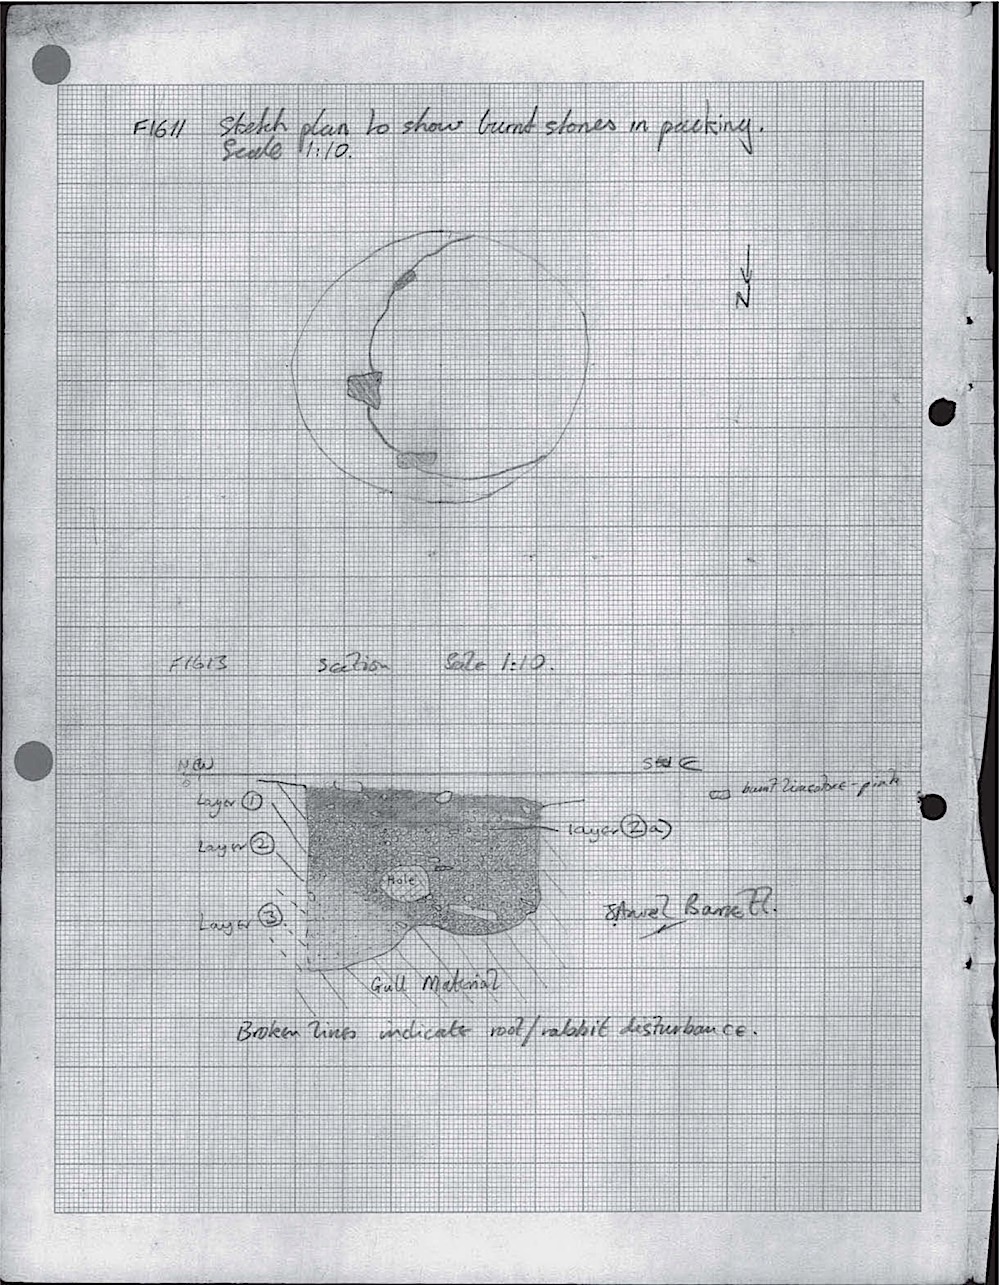 F1611 Sketch plan to show burnt stones in packing.
Scale 1:10.
N
F1613 Section Scale 1:10.
NW
SE
burnt limestone - pink
Layer 1
Layer 2a)
Layer 2
Hole
Layer 3
Barrett.
Gull Material
Broken lines indicate root/rabbit disturbance.